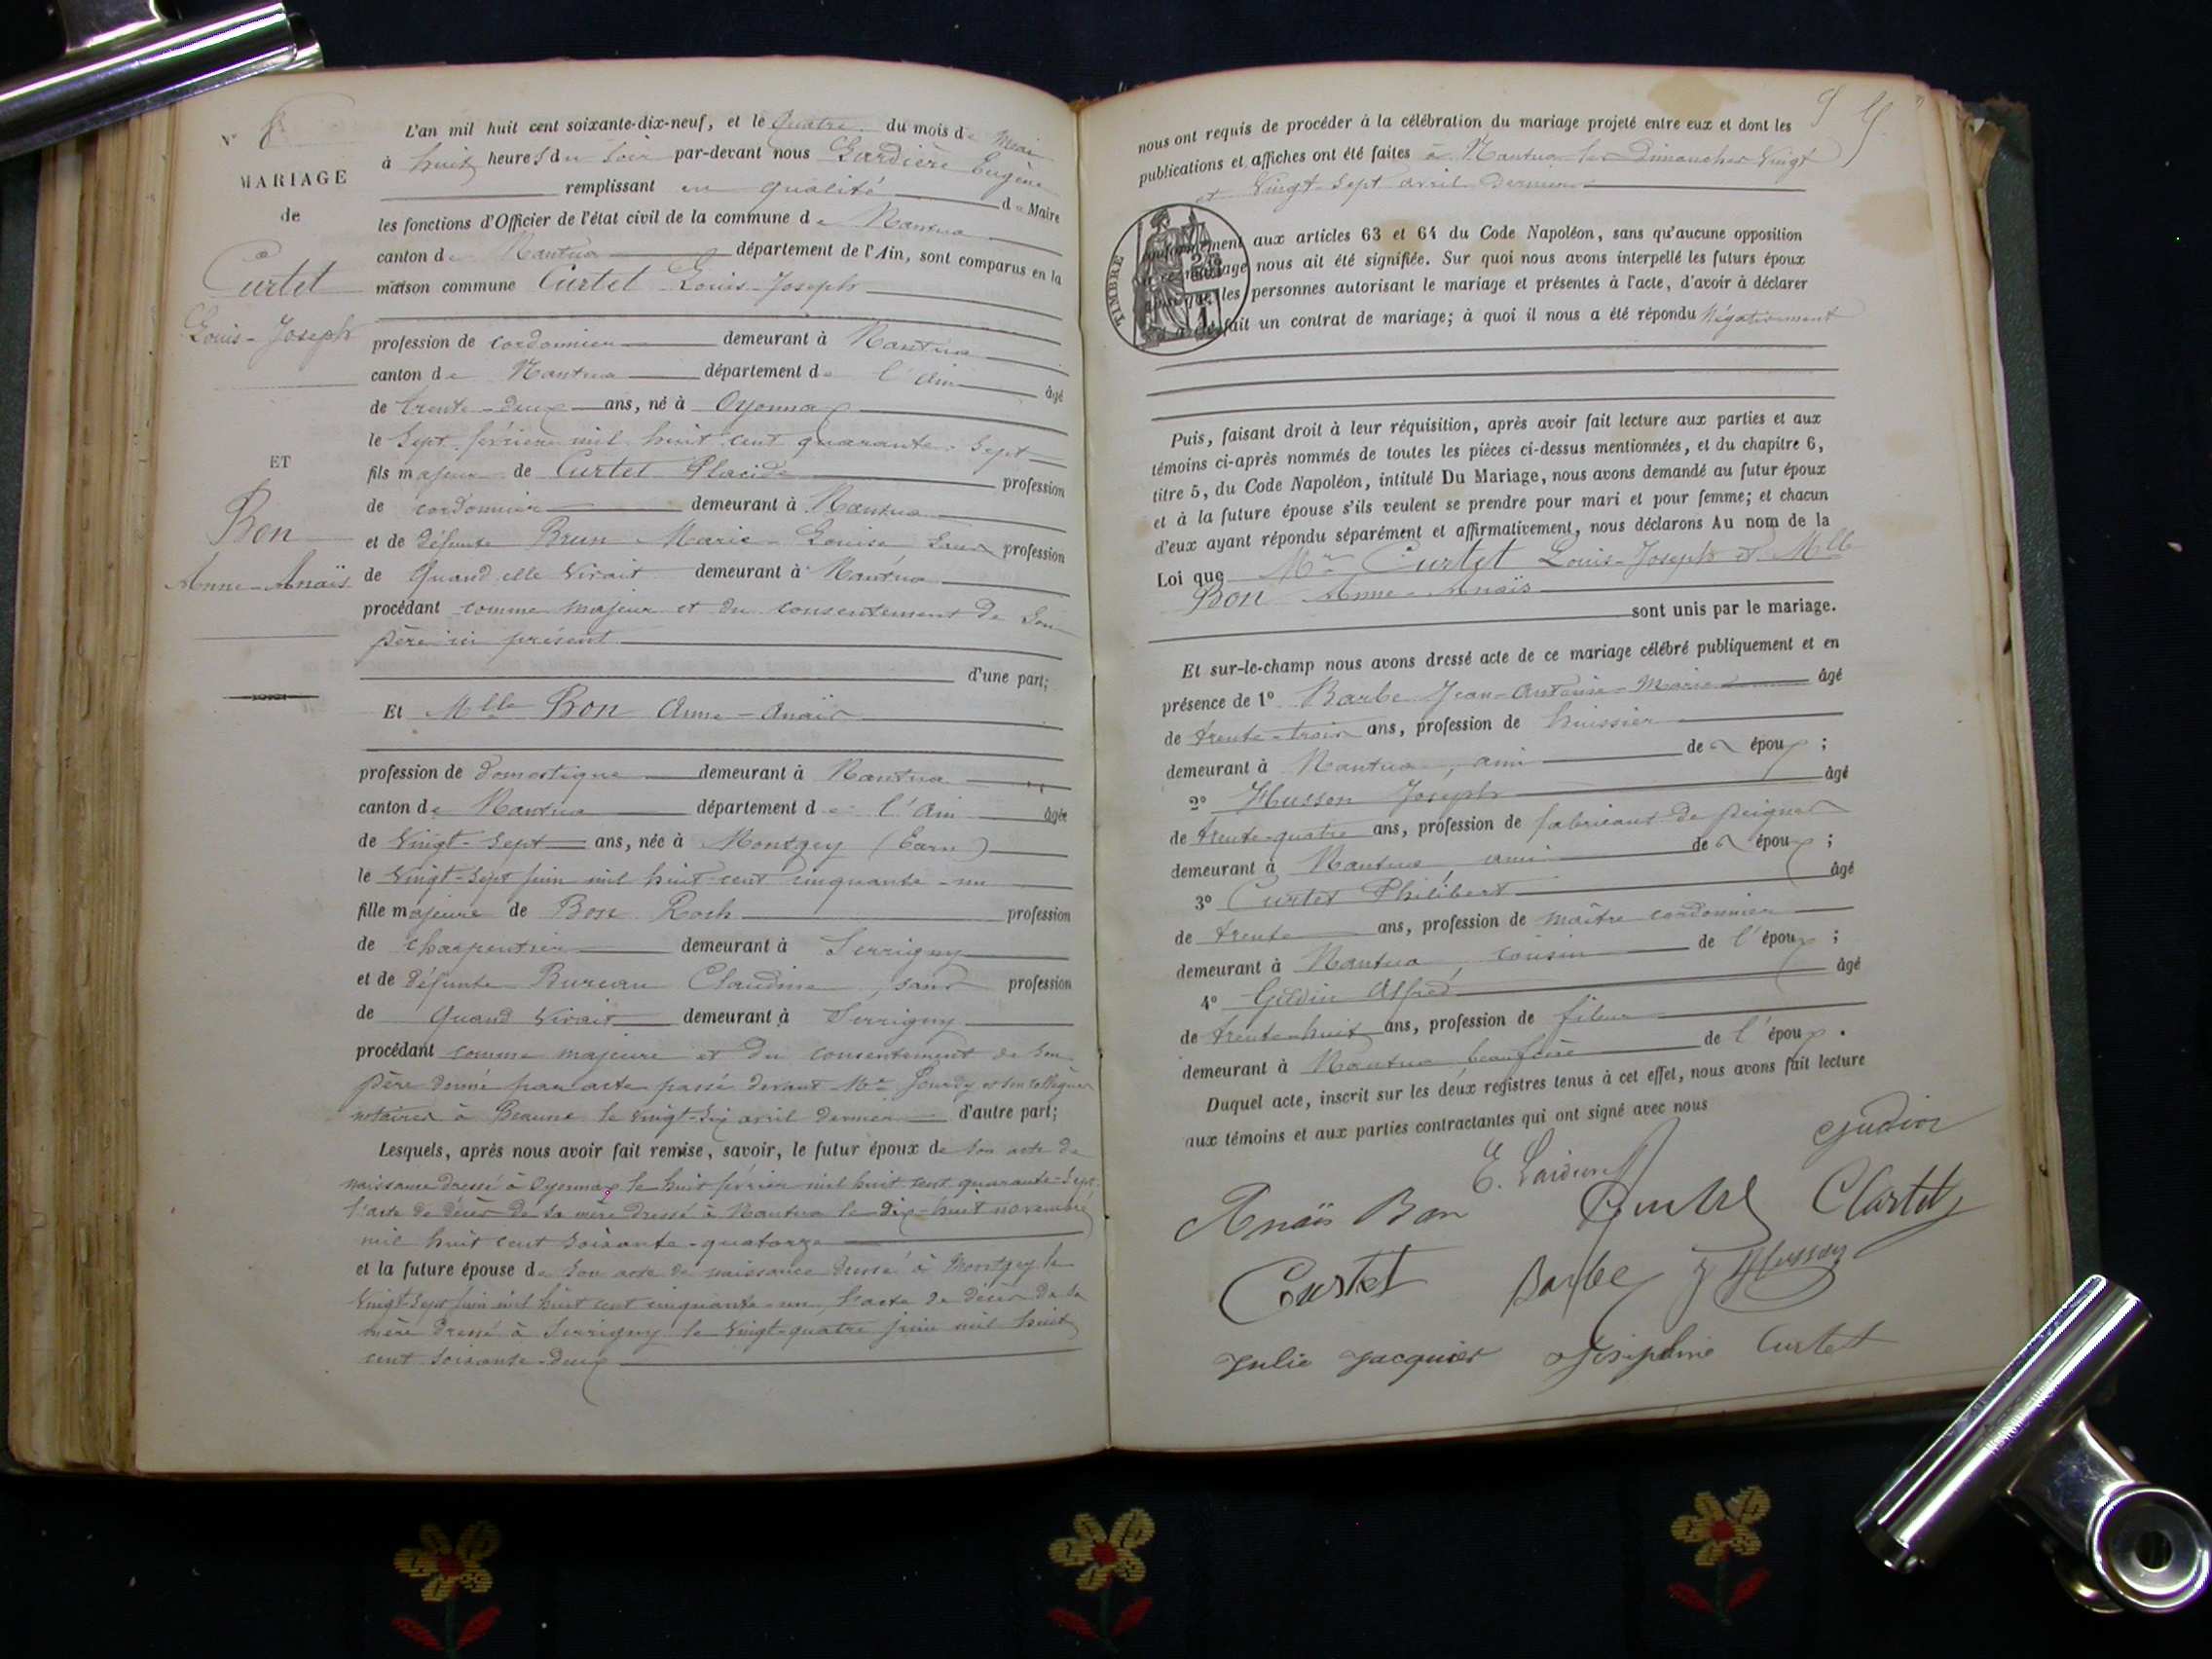 N° 8
MARIAGE
de
Curtet
Louis-Joseph
ET
Bon
Anne-Anaïs
L'an mil huit cent soixante-dix-neuf, et le quatre du mois de Mai
à huit heures du soir par-devant nous Eugène
remplissant en qualité de Maire
les fonctions d'Officier de l'état civil de la commune de Nantua
canton de Nantua département de l'Ain, sont comparus en la
maison commune Curtet Louis-Joseph
profession de cordonnier demeurant à Nantua
canton de Nantua département de l'Ain âgé
de trente-deux ans, né à Oyonnax
le sept février mil huit cent quarante-sept
fils majeur de Curtet Placide profession
de cordonnier demeurant à Nantua
et de défunte Brun Marie-Louise sans profession
de quand elle vivait demeurant à Nantua
procédant comme majeur et du consentement de son
père ici présent
d'une part;
Et Mlle Bon Anne-Anaïs
profession de domestique demeurant à Nantua
canton de Nantua département de l'Ain âgée
de vingt-sept ans, née à Montgey (Tarn)
le vingt-sept juin mil huit cent cinquante-un
fille majeure de Bon Roch profession
de charpentier demeurant à Serrigny
et de défunte Bureau Claudine, sans profession
de quand vivait demeurant à Serrigny
procédant comme majeure et du consentement de son
père donné par acte passé devant Me et son collègue
notaires à Beaune le vingt-six avril dernier d'autre part;
Lesquels, après nous avoir fait remise, savoir, le futur époux de son acte de
naissance dressé à Oyonnax le huit février mil huit cent quarante-sept,
l'acte de décès de sa mère dressé à Nantua le dix-huit novembre
mil huit cent soixante-quatorze
et la future épouse de son acte de naissance dressé à Montgey le
vingt-sept juin mil huit cent cinquante-un, l'acte de décès de sa
mère dressé à Serrigny le vingt-quatre juin mil huit
cent soixante-deux
nous ont requis de procéder à la célébration du mariage projeté entre eux et dont les
publications et affiches ont été faites à Nantua les Dimanches vingt
et vingt-sept avril dernier
TIMBRE
conformément aux articles 63 et 64 du Code Napoléon, sans qu'aucune opposition
à ce mariage nous ait été signifiée. Sur quoi nous avons interpellé les futurs époux
ainsi que les personnes autorisant le mariage et présentes à l'acte, d'avoir à déclarer
fait un contrat de mariage; à quoi il nous a été répondu négativement
Puis, faisant droit à leur réquisition, après avoir fait lecture aux parties et aux
témoins ci-après nommés de toutes les pièces ci-dessus mentionnées, et du chapitre 6,
titre 5, du Code Napoléon, intitulé Du Mariage, nous avons demandé au futur époux
et à la future épouse s'ils veulent se prendre pour mari et pour femme; et chacun
d'eux ayant répondu séparément et affirmativement, nous déclarons Au nom de la
Loi que Mr Curtet Louis-Joseph et Mlle
Bon Anne-Anaïs
sont unis par le mariage.
Et sur-le-champ nous avons dressé acte de ce mariage célébré publiquement et en
présence de 1° Barbe Jean-Antoine-Marie âgé
de trente-trois ans, profession de huissier
demeurant à Nantua, ami de époux;
2° Husson Joseph âgé
de trente-quatre ans, profession de fabricant de peignes
demeurant à Nantua, ami de époux;
3° Curtet Philibert âgé
de trente ans, profession de maître cordonnier
demeurant à Nantua, cousin de l'époux;
4° Alfred âgé
de trente-huit ans, profession de fileur
demeurant à Nantua beau-frère de l'époux.
Duquel acte, inscrit sur les deux registres tenus à cet effet, nous avons fait lecture
aux témoins et aux parties contractantes qui ont signé avec nous
Anaïs Bon Curtet
Curtet Barbe J Husson
Julie Jacquier Joséphine Curtet